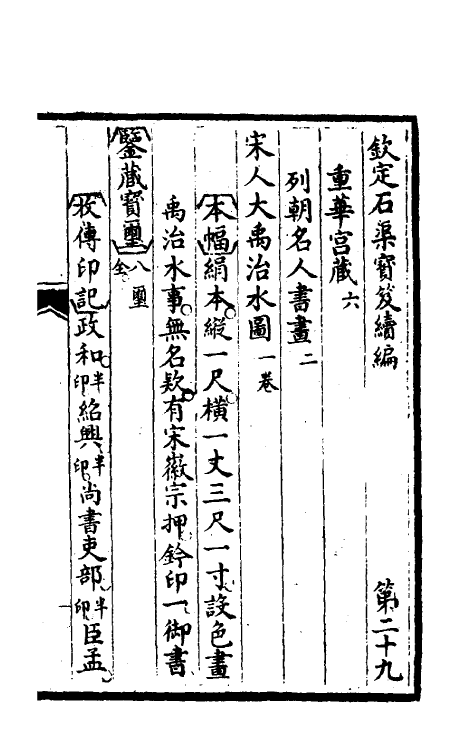 欽定石渠寶笈續編 第二十九
重華宮藏六
列朝名人書畫二
宋人大禹治水圖一卷
本幅絹本縱一尺橫一丈三尺一寸設色畫
禹治水事無名欵有宋徽宗押鈐印一御書
鑒藏寶璽八璽全
收傳印記政和半印紹興半印尚書吏部半印臣孟